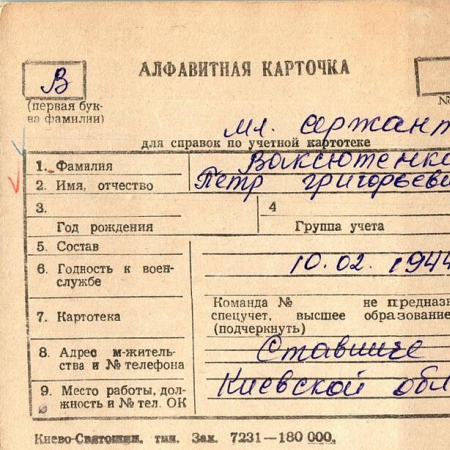 В АЛФАВИТНАЯ КАРТОЧКА
(первая бук-
ва фамилии) №
мл. сержант
для справок по учетной картотеке
1. Фамилия Ваксютенко
2. Имя, отчество Петр Григорьеви
3. 4
Год рождения Группа учета
5. Состав
6. Годность к воен-
службе 10.02.1944
7. Картотека Команда № не предназ
спецучет, высшее образование
(подчеркнуть)
8. Адрес м-житель-
ства и № телефона Ставище
9. Место работы, дол-
жность и № тел. ОК Киевской обл
Киево-Святошин. тип. Зак. 7231—180 000.